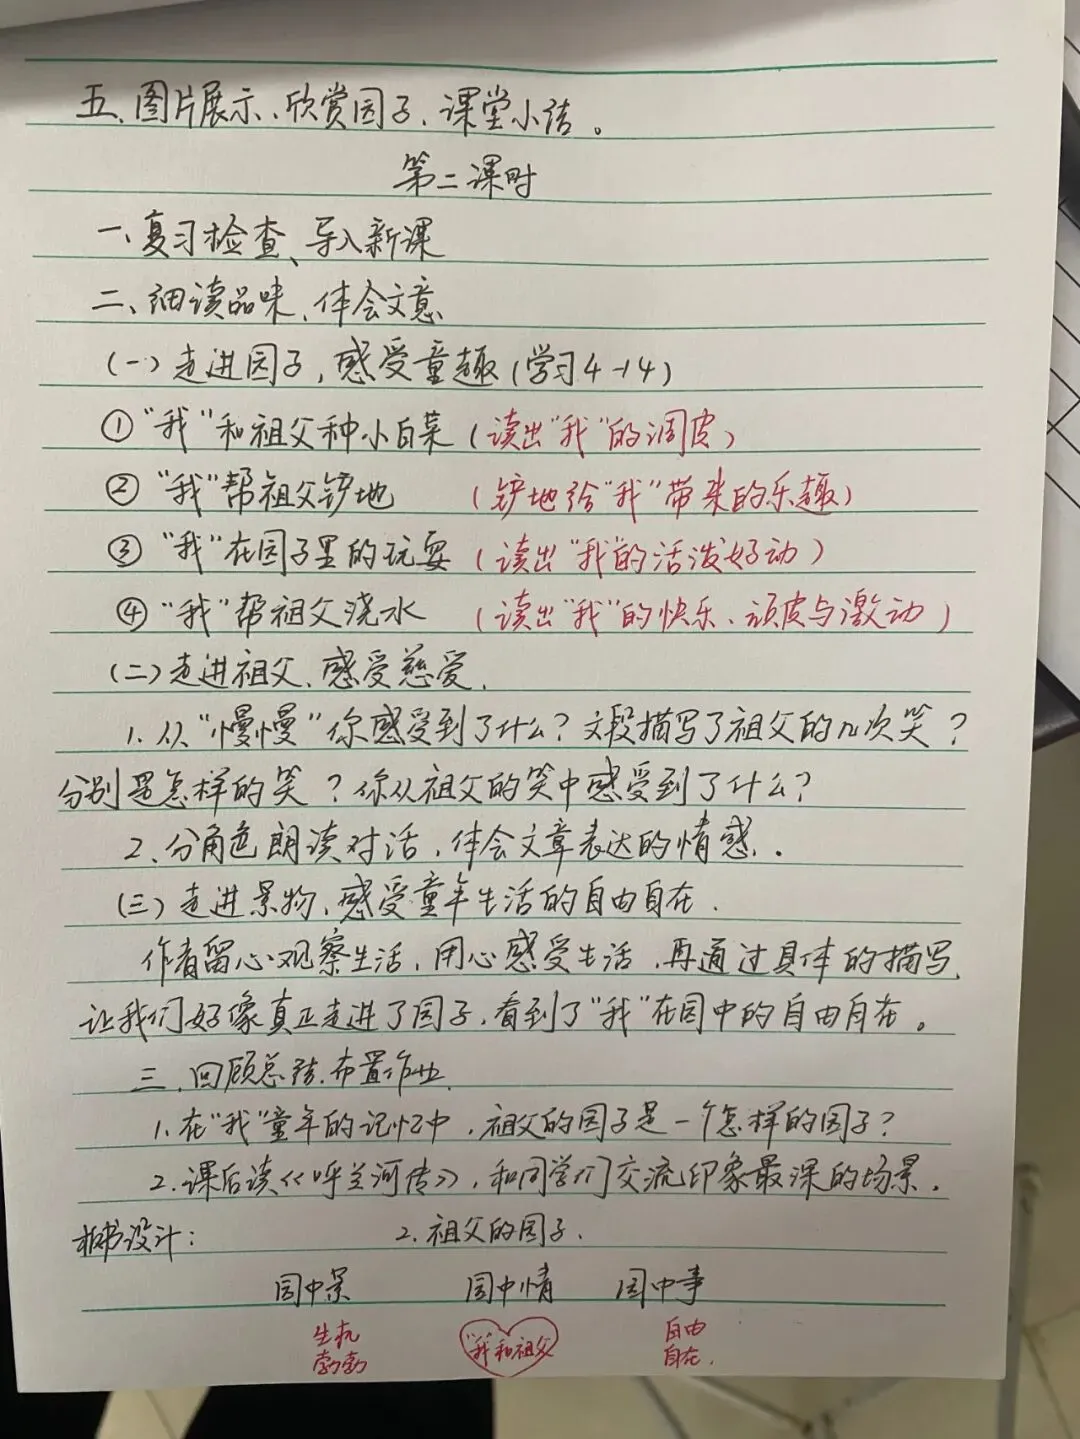 五、图片展示、欣赏园子、课堂小结。
第二课时
一、复习检查、导入新课
二、细读品味、体会文意
(一)走进园子,感受童趣(学习4-14)
①“我”和祖父种小白菜(读出“我”的调皮)
②“我”帮祖父铲地 (铲地给“我”带来的乐趣)
③“我”在园子里的玩耍(读出“我”的活泼好动)
④“我”帮祖父浇水 (读出“我”的快乐、顽皮与激动)
(二)走进祖父、感受慈爱.
1.从“慢慢”你感受到了什么?文段描写了祖父的几次笑?
分别是怎样的笑?你从祖父的笑中感受到了什么?
2、分角色朗读对话,体会文章表达的情感.
(三)走进景物、感受童年生活的自由自在.
作者留心观察生活,用心感受生活,再通过具体的描写,
让我们好像真正走进了园子,看到了“我”在园中的自由自在。
三、回顾总结、布置作业.
1.在“我”童年的记忆中,祖父的园子是一个怎样的园子?
2.课后读《呼兰河传》,和同学们交流印象最深的场景.
板书设计: 2.祖父的园子.
园中景 园中情 园中事
生机 “我和祖父 自由
勃勃 自在.